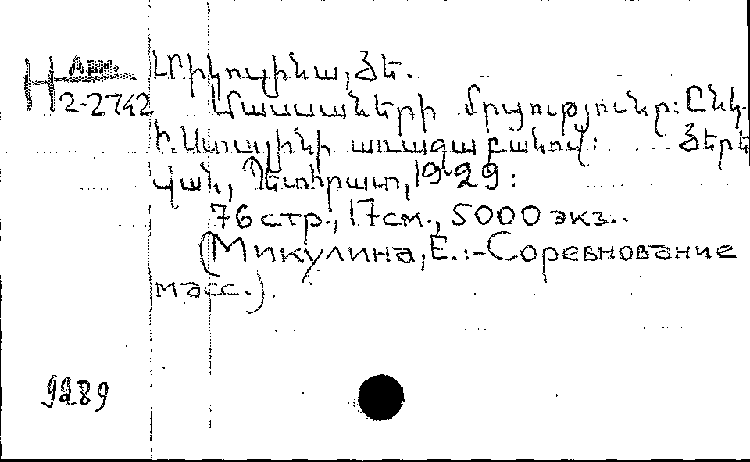 Արմ.
H
2-2742
Միկուլինա, Յե.
Մասսաների մրցությունը: Ընկ.
Ի. Ստալինի առաջաբանով: Յերե
վան, Պետհրատ, 1929:
76 стр., 17см., 5000 экз..
(Микулина, Е.:-Соревнование
масс.).
9289